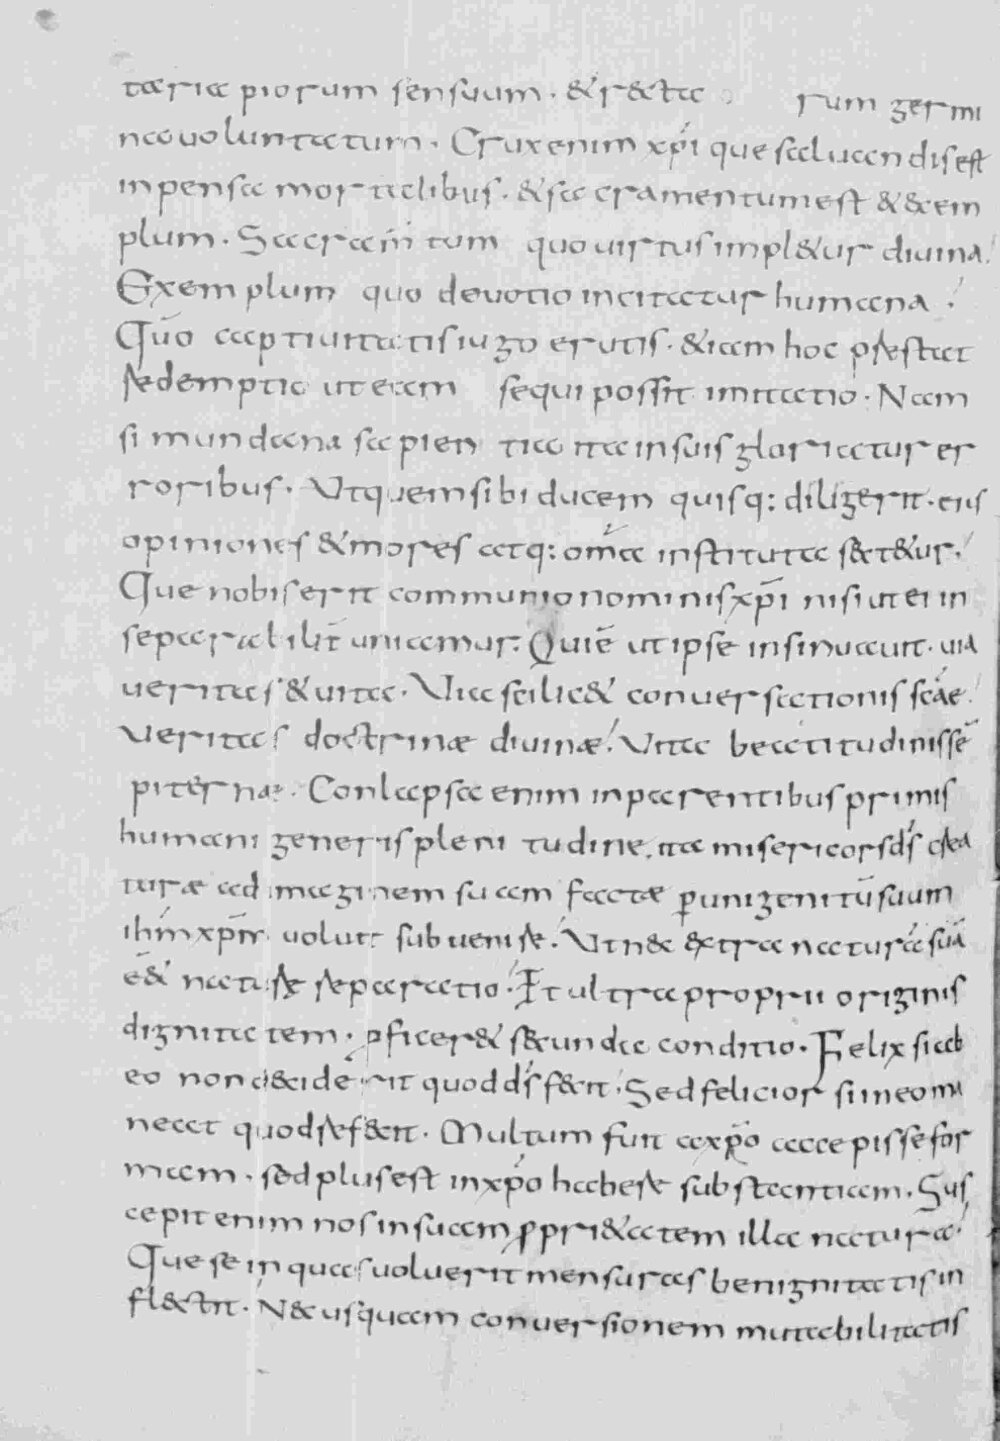 taria piorum sensuum. & recta rum germi
na uoluntatum. Crux enim xp̄i que saluandis est
inpensa mortalibus. & sacramentum est & exem
plum. Sacram̄tum quo uirtus impl&ur diuina.
Exemplum quo deuotio incitatur humana.
Qūo captiuitatis iugo erutis. &iam hoc prestat
redemptio ut eam sequi possit imitatio. Nam
si mundana sapientia ita in suis gloriatur er
roribus. Ut quem sibi ducem quisq: diligerit. eius
opiniones & mores atq: om̄a instituta sect&ur.
Que nobis erit communio nominis xp̄i nisi ut ei in
separabilit̄ uniamur. Qui ē ut ipse insinuauit. uia
ueritas & uita. Uia scilic& conuersationis sc̄ae.
Veritas doctrinæ diuinæ. Uita beatitudinis sē
piternæ. Conlapsa enim in parentibus primis
humani generis plenitudine. ita misericors d̄s crea
turæ ad imaginem suam factæ p unigenitū suum
ih̄m xp̄m uoluit subuenire. Ut nec extra naturā suā
ēe& nature reparatio. Et ultra proprii originis
dignitatem. pficer& secunda conditio. Felix si ab
eo non decider&it quod d̄s fecit. Sed felicior si in eo ma
neat quod refecit. Multum fuit a xp̄o accepisse for
mam. sed plus est in xp̄o habere substantiam. Sus
cepit enim nos in suam ppri&atem illa natura.
Que se in quas uoluerit mensuras benignitatis in
flectit. Nec usquam conuersionem mutabilitatis